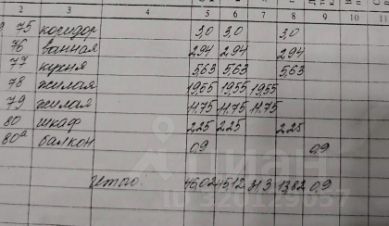 2 3 4 5 6 7 8 9 10 11
75 коридор 3,0 3,0 3,0
76 ванная 2,94 2,94 2,94
77 кухня 5,63 5,63 5,63
78 жилая 19,55 19,55 19,55
79 жилая 11,75 11,75 11,75
80 шкаф 2,25 2,25 2,25
80а балкон 0,9 0,9
Итого 46,02 45,12 31,3 13,82 0,9